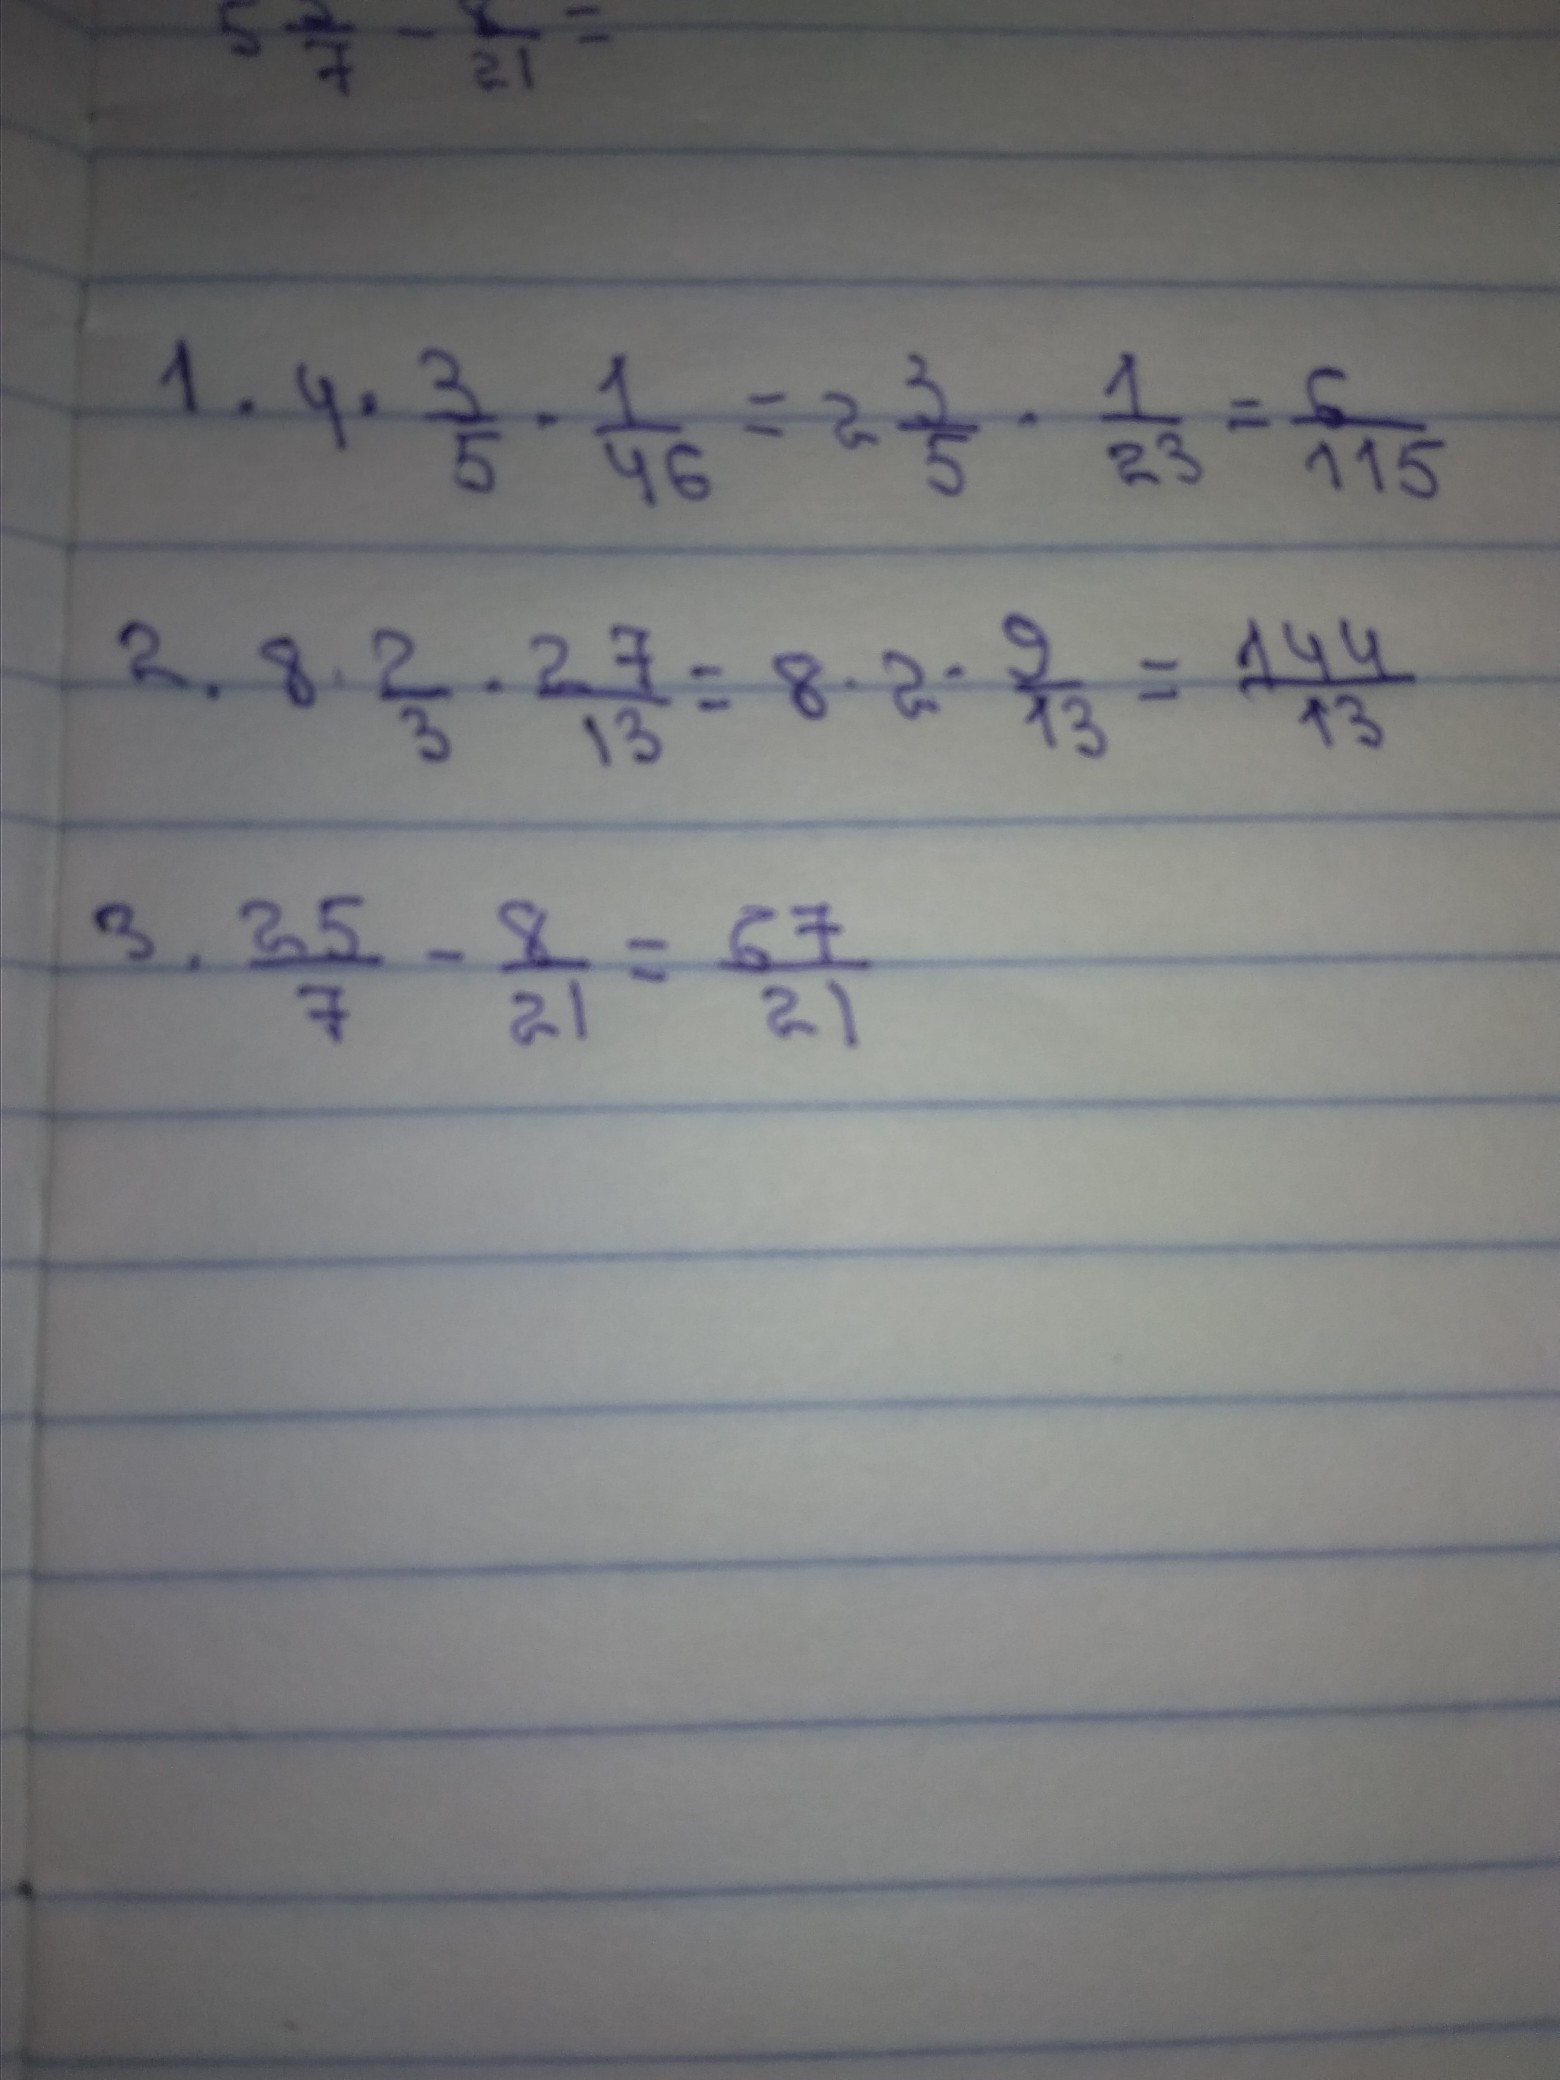 5 /7 - 8/21 =
1. 4 · 3/5 · 1/46 = 2 3/5 · 1/23 = 6/115
2. 8 · 2/3 · 27/13 = 8 · 2 · 9/13 = 144/13
3. 25/7 - 8/21 = 67/21